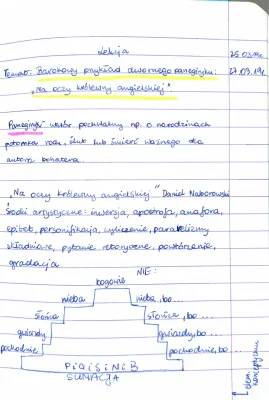 Lekcja 25.03.19r.
Temat: Barokowy przykład dwornego panegiryku: 27.03.19r.
"Na oczy królewny angielskiej".
Panegiryk utwór pochwalny np. o narodzinach
potomka rodu, ślub lub śmierć ważnego dla
autora bohatera.
"Na oczy królewny angielskiej" Daniel Naborowski
Środki artystyczne: inwersja, apostrofa, anafora,
epitet, personifikacja, wyliczenie, paralelizmy
składniowe, pytanie retoryczne, powtórzenie,
gradacja
NIE:
boginie
nieba nieba, bo...
słońca słońca, bo...
gwiazdy gwiazdy, bo...
pochodnie pochodnie, bo...
P i G i S i N i B
SUMACJA
elem. konceptyzmu